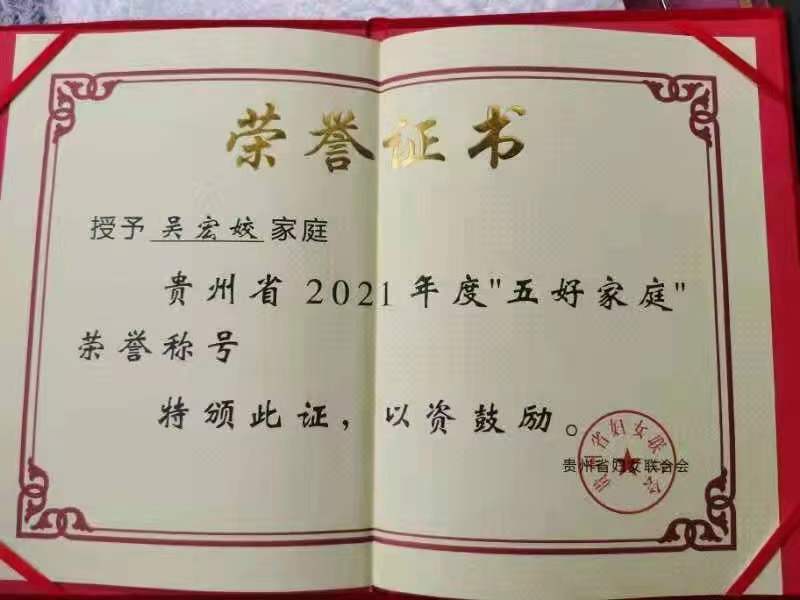 荣誉证书
授予 吴宏姣 家庭
贵州省2021年度"五好家庭"
荣誉称号
特颁此证，以资鼓励。
贵州省妇女联合会
贵州省妇女联合会